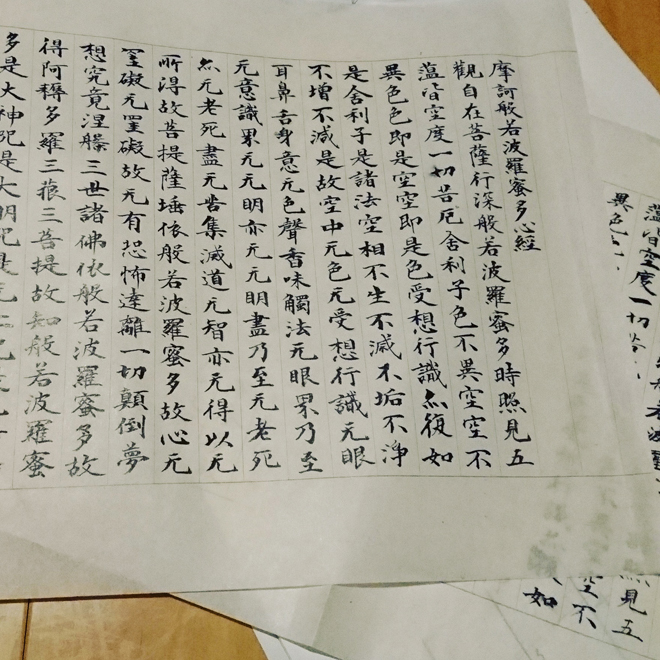 摩訶般若波羅蜜多心經
觀自在菩薩行深般若波羅蜜多時照見五
蘊皆空度一切苦厄舍利子色不異空空不
異色色即是空空即是色受想行識亦復如
是舍利子是諸法空相不生不滅不垢不淨
不增不減是故空中无色无受想行識无眼
耳鼻舌身意无色聲香味觸法无眼界乃至
无意識界无无明亦无无明盡乃至无老死
亦无老死盡无苦集滅道无智亦无得以无
所得故菩提薩埵依般若波羅蜜多故心无
罣礙无罣礙故无有恐怖遠離一切顛倒夢
想究竟涅槃三世諸佛依般若波羅蜜多故
得阿耨多羅三藐三菩提故知般若波羅蜜
多是大神咒是大明咒是
見五
蘊皆空度一切
空不
異色
如